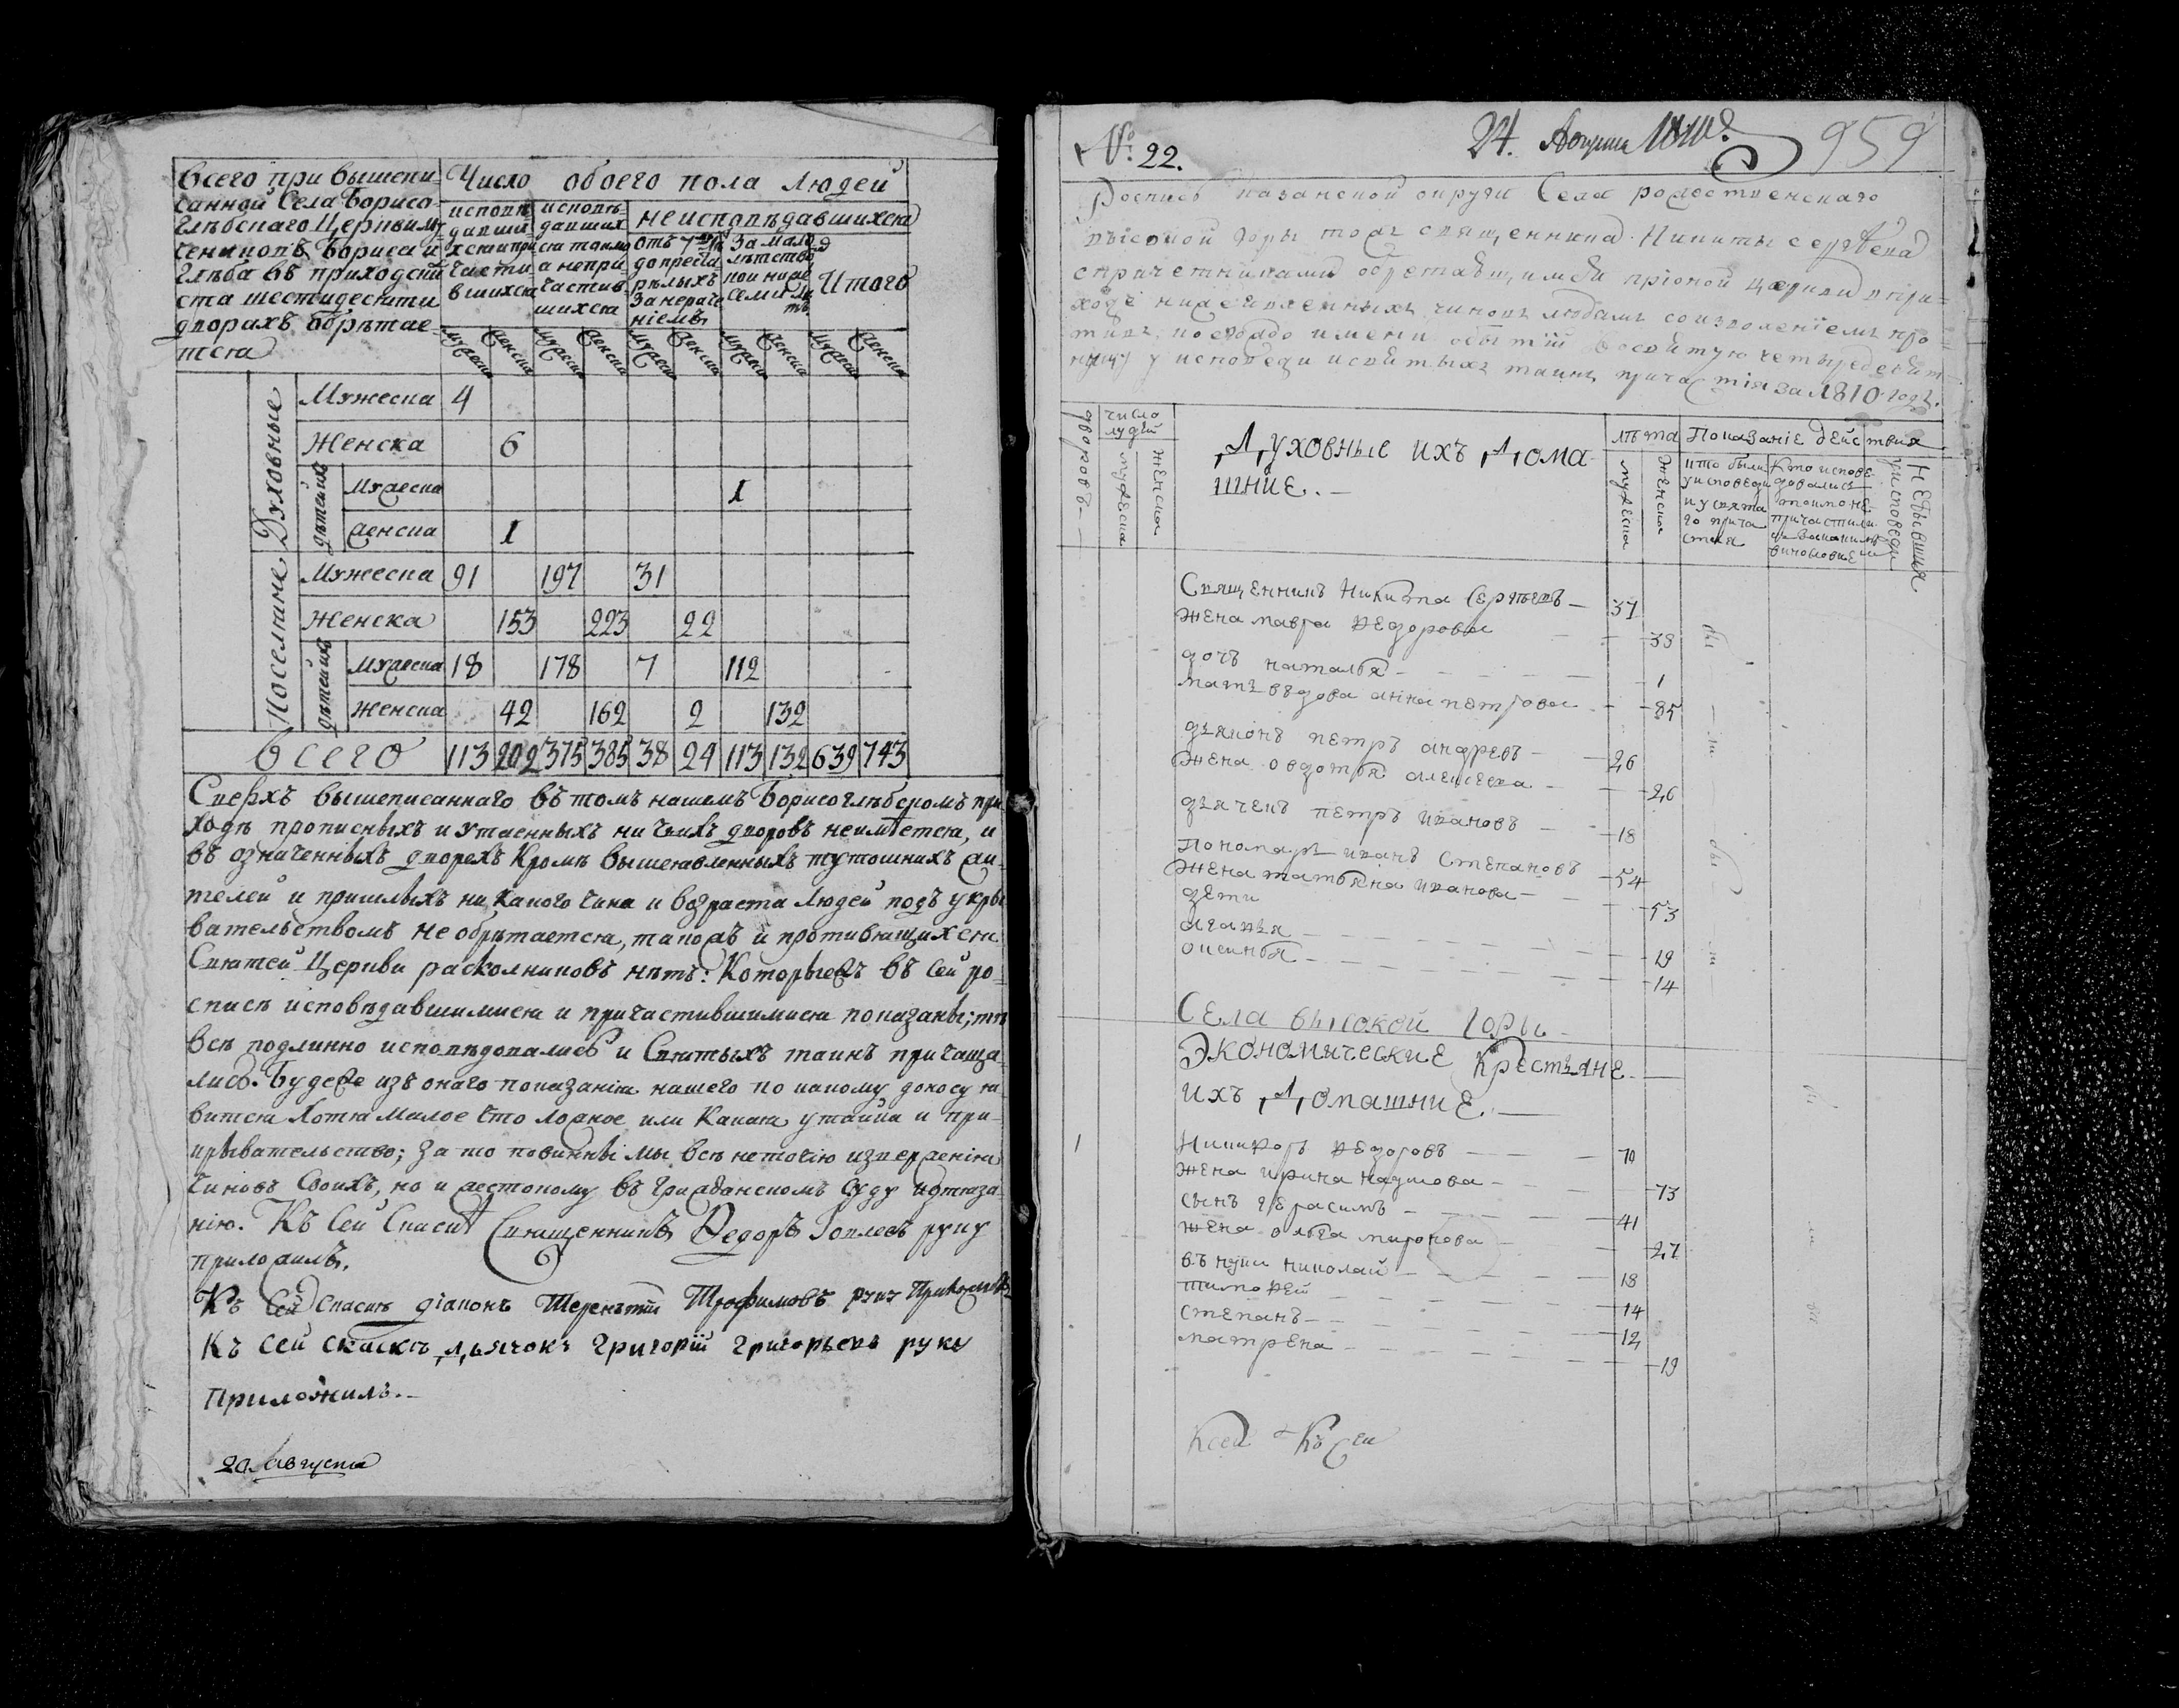 Всего при вышепи-
санной Села Борисо-
глѣбскаго Церкви му-
чениковъ Бориса и
Глѣба въ приходе
ста шестидесяти
дворахъ обрѣтае-
тся
Число обоего пола людей
исповѣ-
давши-
хся и при-
части-
вшихся
исповѣ-
давших
ся токмо
а непри-
частив-
шихся
неисповѣдавшихся
отъ 7
до преста
рѣлыхъ
за нераче
ніемъ
За мало
лѣтство
пониже
семи лѣ
тъ
Итого
мужеска женска мужеска женска мужеска женска мужеска женска мужеска женска
Духовные
Мужеска 4
Женска 6
дѣтей ихъ
мужеска 1
женска 1
Поселяне
Мужеска 91 197 31
Женска 153 223 22
дѣтей ихъ
мужеска 18 178 7 112
женска 42 162 2 132
Всего 113 202 375 385 38 24 113 132 639 743
Сверхъ вышеписаннаго въ томъ нашемъ Борисоглѣбскомъ при
ходѣ прописныхъ и утаенныхъ ни чьихъ дворовъ неимѣется, и
въ означенныхъ дворехъ кромѣ вышеявленныхъ тутошнихъ жи-
телей и пришлыхъ ни какого чина и возраста людей подъ укры
вательствомъ не обрѣтается, такожъ и противящихся
Святей Церкви расколниковъ нѣтъ: Которыежъ въ сей ро-
списѣ исповѣдавшимися и причастившимися показаны; тѣ
всѣ подлинно исповѣдовались и Святыхъ таинъ причаща-
лись. Будеже изъ онаго показанія нашего по какому доносу я
вится хотя малое что ложное или какая утайка и при-
крывательство; за то повинны мы всѣ неточію изверженію
чиновъ своихъ, но и жестокому въ гражданскомъ суду истяза
нію. Къ сей Сказке Священникъ Ѳедоръ руку
приложилъ.
Къ сей сказкѣ діаконъ Терентій Трофимовъ руку приложилъ
Къ сей скаскѣ дьячокъ Григорій Григорьевъ руку
Приложилъ.
20 Августа
№ 22.
24. Августа 1810 г.
959
Роспись Казанской округи Села рождественскаго
высокой горы тожъ священника Никиты сергѣева
спричетниками обретающимися прионой церкви впри-
ходе нижеявленныхъ чиновъ людамъ соизволеніемъ про-
тивъ коегождо имени о бытіи восвятую четыредесят-
ницу у исповеди исвятыхъ таинъ причастія за 1810 годъ.
дворовъ
число
людей
мужеска
женска
Духовные ихъ дома
шние.
лѣта
мужеска
женска
Показаніе действия
кто были
у исповеди
и у свята
го прича
стия
кто испове
довались
токмо не
причастили
Небывшия
у исповеди
Священникъ Никита Сергѣевъ 37
жена мавра ѳедорова 38
дочь наталья 1
мать вдова анна петрова 85
дьяконъ петръ андревъ 26
Жена овдотья алексеева 26
дьячекъ петръ ивановъ 18
Пономарь иванъ Степановъ 54
Жена татьяна иванова 53
дети
агаѳья 19
оксинья 14
Села высокой горы
Экономические Крестьяне
ихъ домашние.
1 Никиѳоръ ѳедоровъ 70
Жена ирина наумова 73
сынъ герасимъ 41
жена ольга миронова 27
внуки николай 18
тимоѳей 14
степанъ 12
матрена 19
Ксей Къ Сей